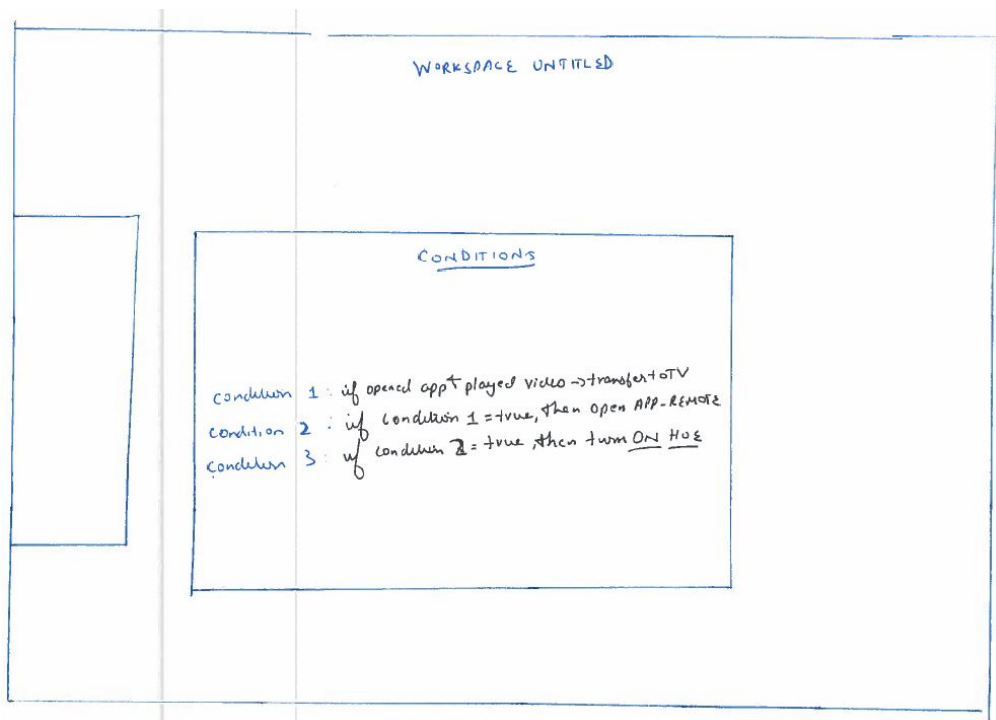 WORKSPACE UNTITLED
CONDITIONS
condition 1: if opened app + played video → transfer to TV
condition 2: if condition 1 = true, then open APP-REMOTE
condition 3: if condition 2 = true, then turn ON HUE